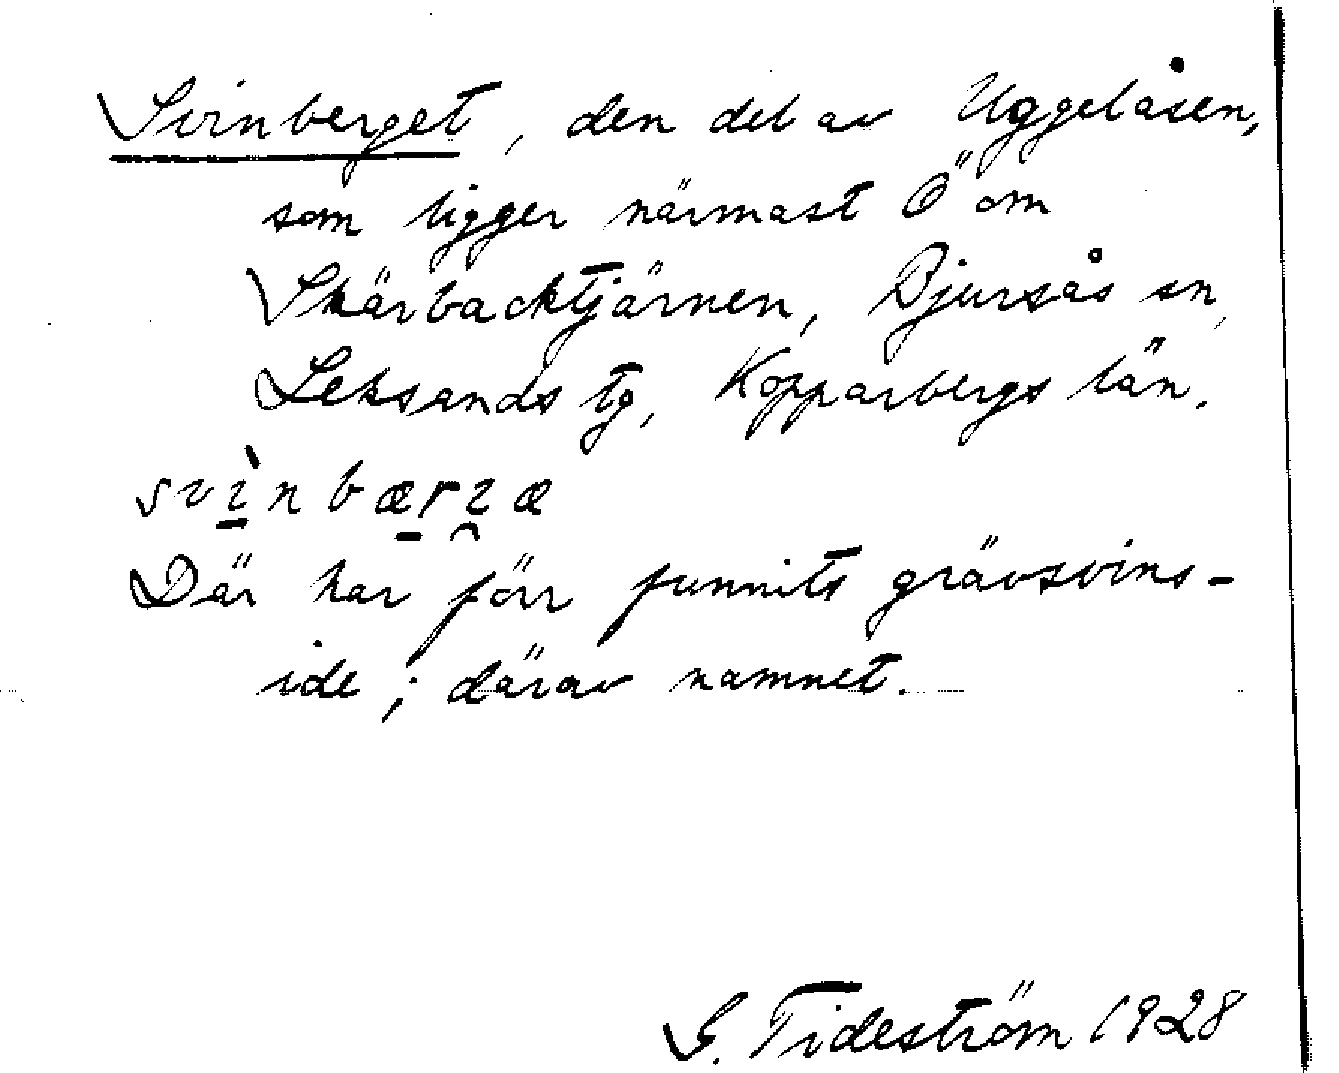 Svinberget, den del av Uggelåsen,
som ligger närmast Ö om
Skärbacktjärnen, Bjursås sn,
Leksands tg, Kopparbergs län.
svì̱nbæ̱rı̯æ
Där har förr funnits grävsvins-
ide; därav namnet.
G. Tideström 1928